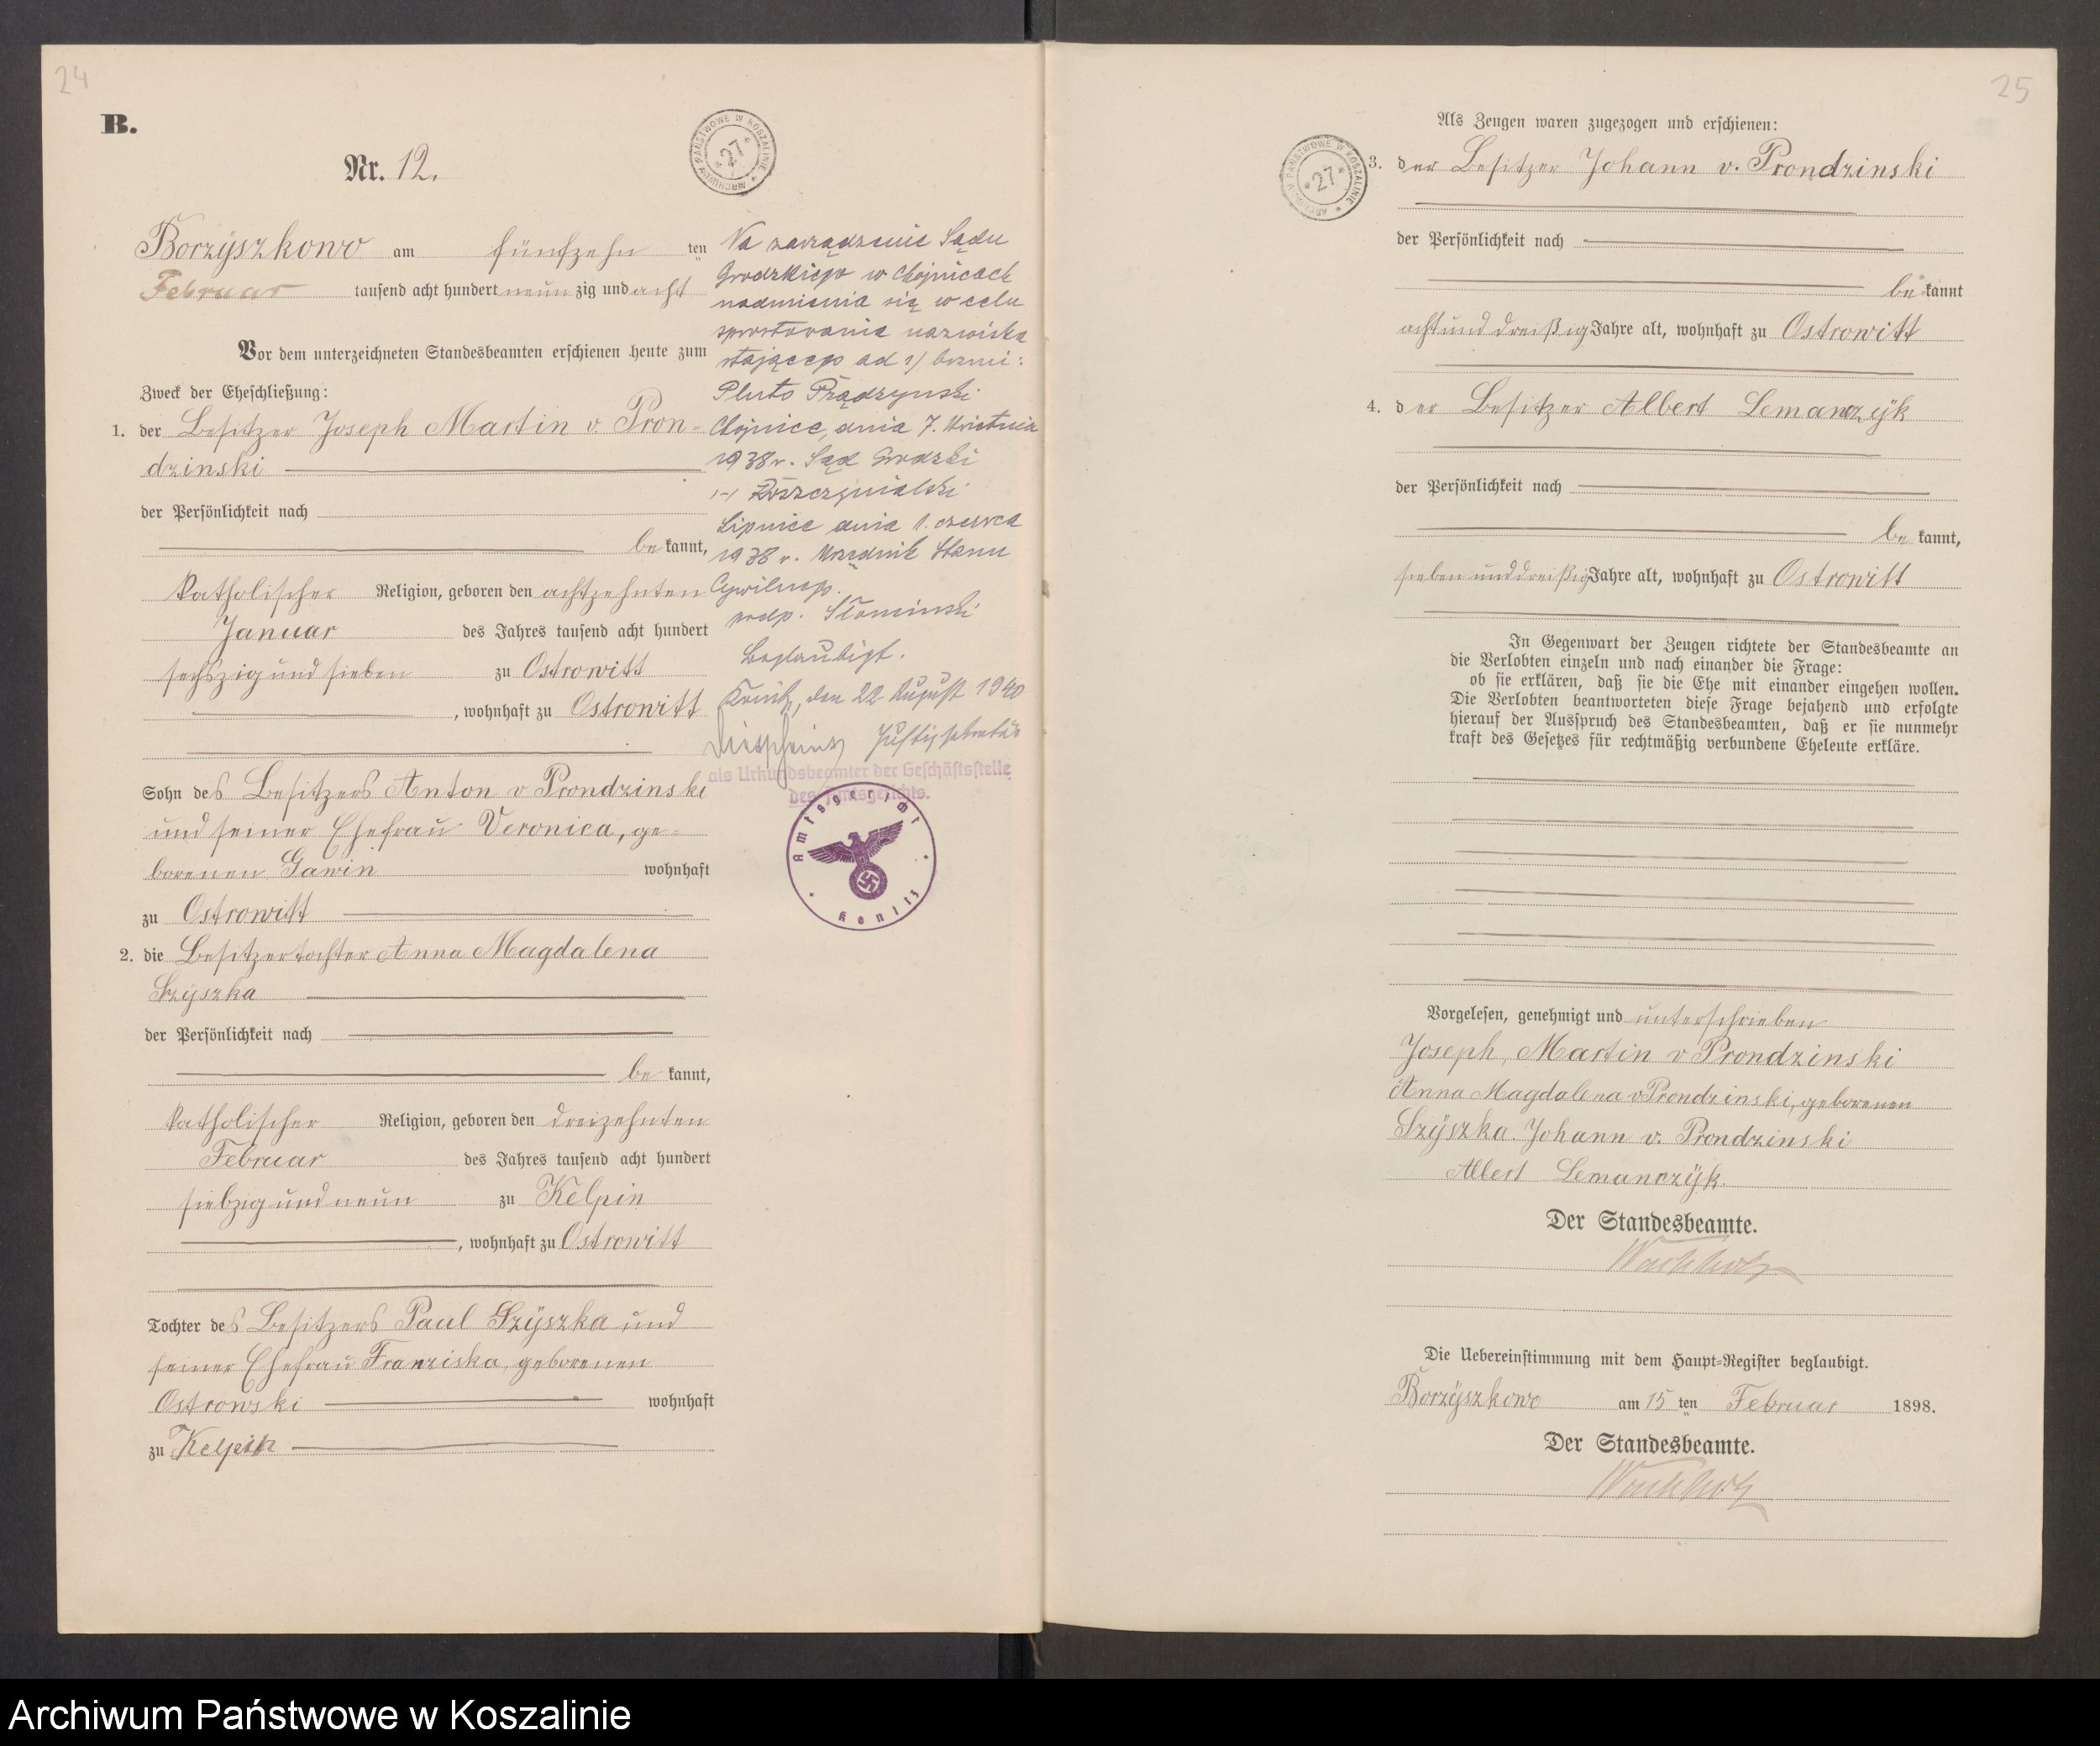 24
B.
Nr. 12.
ARCHIWUM PAŃSTWOWE W KOSZALINIE * 27 *
Borzÿszkowo am fünfzehn ten
Februar tausend acht hundert neun zig und acht
Vor dem unterzeichneten Standesbeamten erschienen heute zum
Zweck der Eheschließung:
1. der Besitzer Joseph Martin v. Pron=
dzinski
der Persönlichkeit nach
be kannt,
katholischer Religion, geboren den achtzehnten
Januar des Jahres tausend acht hundert
sechszig und sieben zu Ostrowitt
, wohnhaft zu Ostrowitt
Sohn des Besitzers Anton v Prondzinski
und seiner Ehefrau Veronica, ge=
borenen Gawin wohnhaft
zu Ostrowitt
2. die Besitzertochter Anna Magdalena
Szÿszka
der Persönlichkeit nach
be kannt,
katholischer Religion, geboren den dreizehnten
Februar des Jahres tausend acht hundert
siebzig und neun zu Kelpin
, wohnhaft zu Ostrowitt
Tochter des Besitzers Paul Szÿszka und
seiner Ehefrau Franziska, geborenen
Ostrowski wohnhaft
zu Kelpin
Na zarządzenie Sądu
Grodzkiego w Chojnicach
nadmienia się w celu
sprostowania nazwiska
stającego ad 1) brzmi:
Pluto Prądzynski
Chojnice, dnia 7. kwietnia
1938 r. Sąd Grodzki
(-)
Lipnice dnia 1. czerwca
1938 r. Urzędnik Stanu
Cywilnego.
podp. Słominski
Beglaubigt.
Konitz, den 22. August 1940
Justizsekretär
als Urkundsbeamter der Geschäftsstelle
des Amtsgerichts.
Amtsgericht Konitz
25
ARCHIWUM PAŃSTWOWE W KOSZALINIE * 27 *
Als Zeugen waren zugezogen und erschienen:
3. der Besitzer Johann v. Prondzinski
der Persönlichkeit nach
be kannt
acht und dreißig Jahre alt, wohnhaft zu Ostrowitt
4. der Besitzer Albert Lemanczÿk
der Persönlichkeit nach
be kannt,
sieben und dreißig Jahre alt, wohnhaft zu Ostrowitt
In Gegenwart der Zeugen richtete der Standesbeamte an
die Verlobten einzeln und nach einander die Frage:
ob sie erklären, daß sie die Ehe mit einander eingehen wollen.
Die Verlobten beantworteten diese Frage bejahend und erfolgte
hierauf der Ausspruch des Standesbeamten, daß er sie nunmehr
kraft des Gesetzes für rechtmäßig verbundene Eheleute erkläre.
Vorgelesen, genehmigt und unterschrieben
Joseph, Martin v Prondzinski
Anna Magdalena v Prondzinski, geborenen
Szÿszka. Johann v. Prondzinski
Albert Lemanczÿk.
Der Standesbeamte.
Wachholz
Die Uebereinstimmung mit dem Haupt=Register beglaubigt.
Borzÿszkowo am 15 ten Februar 1898.
Der Standesbeamte.
Wachholz
Archiwum Państwowe w Koszalinie